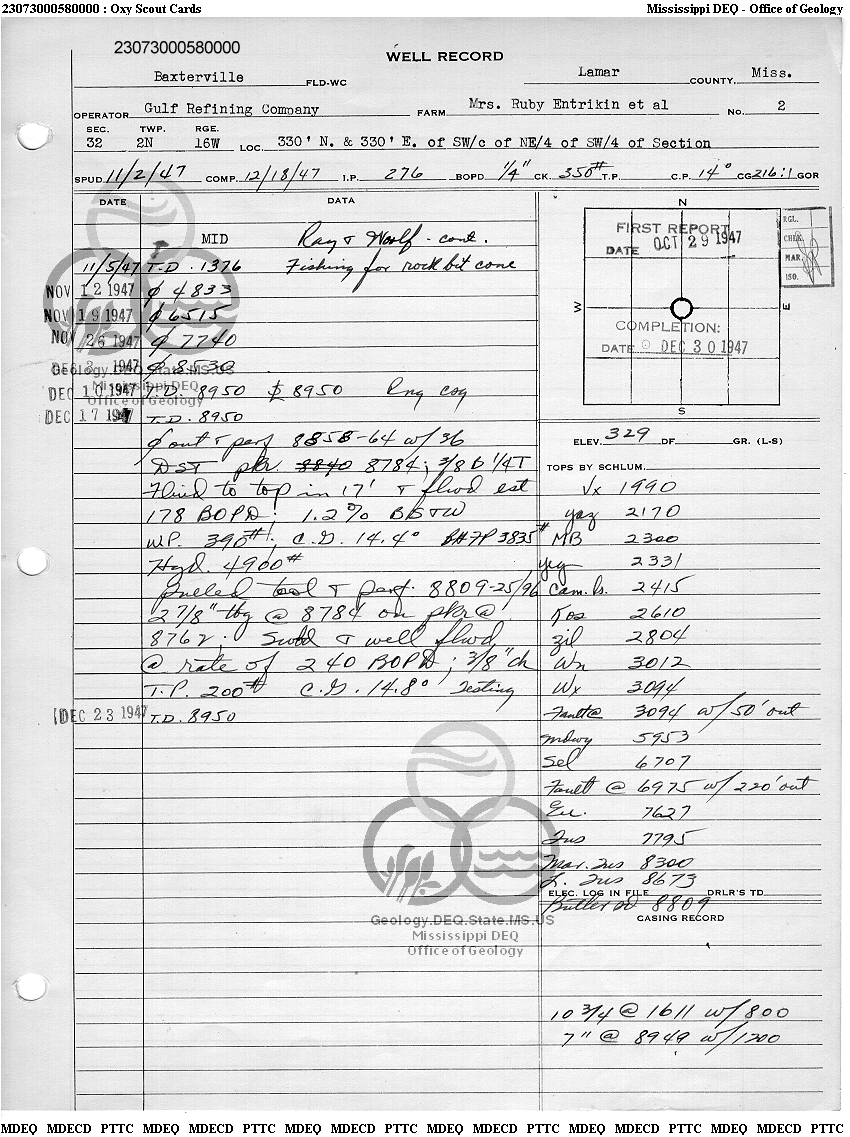 23073000580000 : Oxy Scout Cards Mississippi DEQ - Office of Geology
23073000580000
WELL RECORD
Baxterville FLD-WC Lamar COUNTY, Miss.
OPERATOR Gulf Refining Company FARM Mrs. Ruby Entrikin et al NO. 2
SEC. TWP. RGE.
32 2N 16W LOC. 330' N. & 330' E. of SW/c of NE/4 of SW/4 of Section
SPUD 11/2/47 COMP. 12/18/47 I.P. 276 BOPD 1/4" CK. 350# T.P. C.P. 14° CG 216:1 GOR
DATE DATA
MID Ray & Woolf - cont.
11/5/47 T.D. 1376 Fishing for rock bit cone
NOV 12 1947 ∅ 4833
NOV 19 1947 ∅ 6515
NOV 26 1947 ∅ 7740
DEC 3 1947 ∅ 8530
DEC 10 1947 T.D. 8950 8950 Rng csg
DEC 17 1947 T.D. 8950
∅ out & perf 8858-64 w/36
DST pkr. 8840 8784; 3/8 B 1/4T
Fluid to top in 17' & flwd est
178 BOPD; 1.2% BS&W
WP. 390#; C.G. 14.4° BHFP 3835#
Hyd. 4900#
Pulled tool & perf. 8809-25/96
2 7/8" tbg @ 8784 on pkr @
8762; Swbd & well flwd
@ rate of 240 BOPD; 3/8" ch
T.P. 200# C.G. 14.8° Testing
DEC 23 1947 T.D. 8950
N
W
E
S
FIRST REPORT
DATE OCT 29 1947
COMPLETION:
DATE DEC 30 1947
RGL.
CHER.
MAR.
ISO.
ELEV. 329 DF. GR. (L-S)
TOPS BY SCHLUM.
Vx 1990
yaz 2170
MB 2300
yeg 2331
Cam. b. 2415
Kos 2610
Zil 2804
Wn 3012
Wx 3094
Fault @ 3094 w/50' out
mdwy 5953
Sel 6707
Fault @ 6975 w/220' out
Eu. 7627
Tus 7795
Mar. Tus 8300
L. Tus 8673
ELEC. LOG IN FILE DRLR'S TD
Butler sd 8809
CASING RECORD
10 3/4 @ 1611 w/800
7" @ 8949 w/1200
Geology.DEQ.State.MS.US
Mississippi DEQ
Office of Geology
Geology.DEQ.State.MS.US
Mississippi DEQ
Office of Geology
MDEQ MDECD PTTC MDEQ MDECD PTTC MDEQ MDECD PTTC MDEQ MDECD PTTC MDEQ MDECD PTTC MDEQ MDECD PTTC